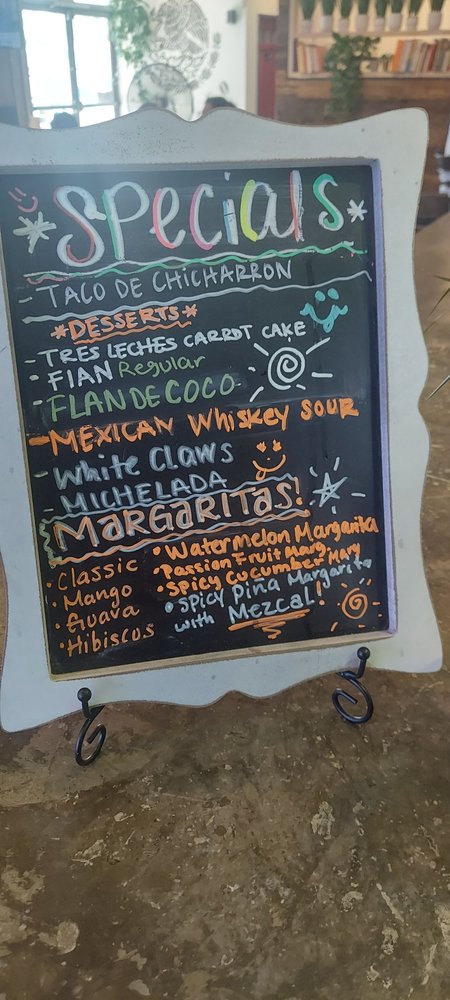 Specials
- TACO DE CHICHARRON
*DESSERTS*
- TRES LECHES CARROT CAKE
• FlAN Regular
- FLAN DE COCO
- MEXICAN Whiskey SOUR
- White Claws
- MICHELADA
MARGARITAS!
• Classic
• Mango
• Guava
• Hibiscus
• Watermelon Margarita
• Passion Fruit Marg
• Spicy Cucumber Marg
• Spicy Piña Margarita
with Mezcal!